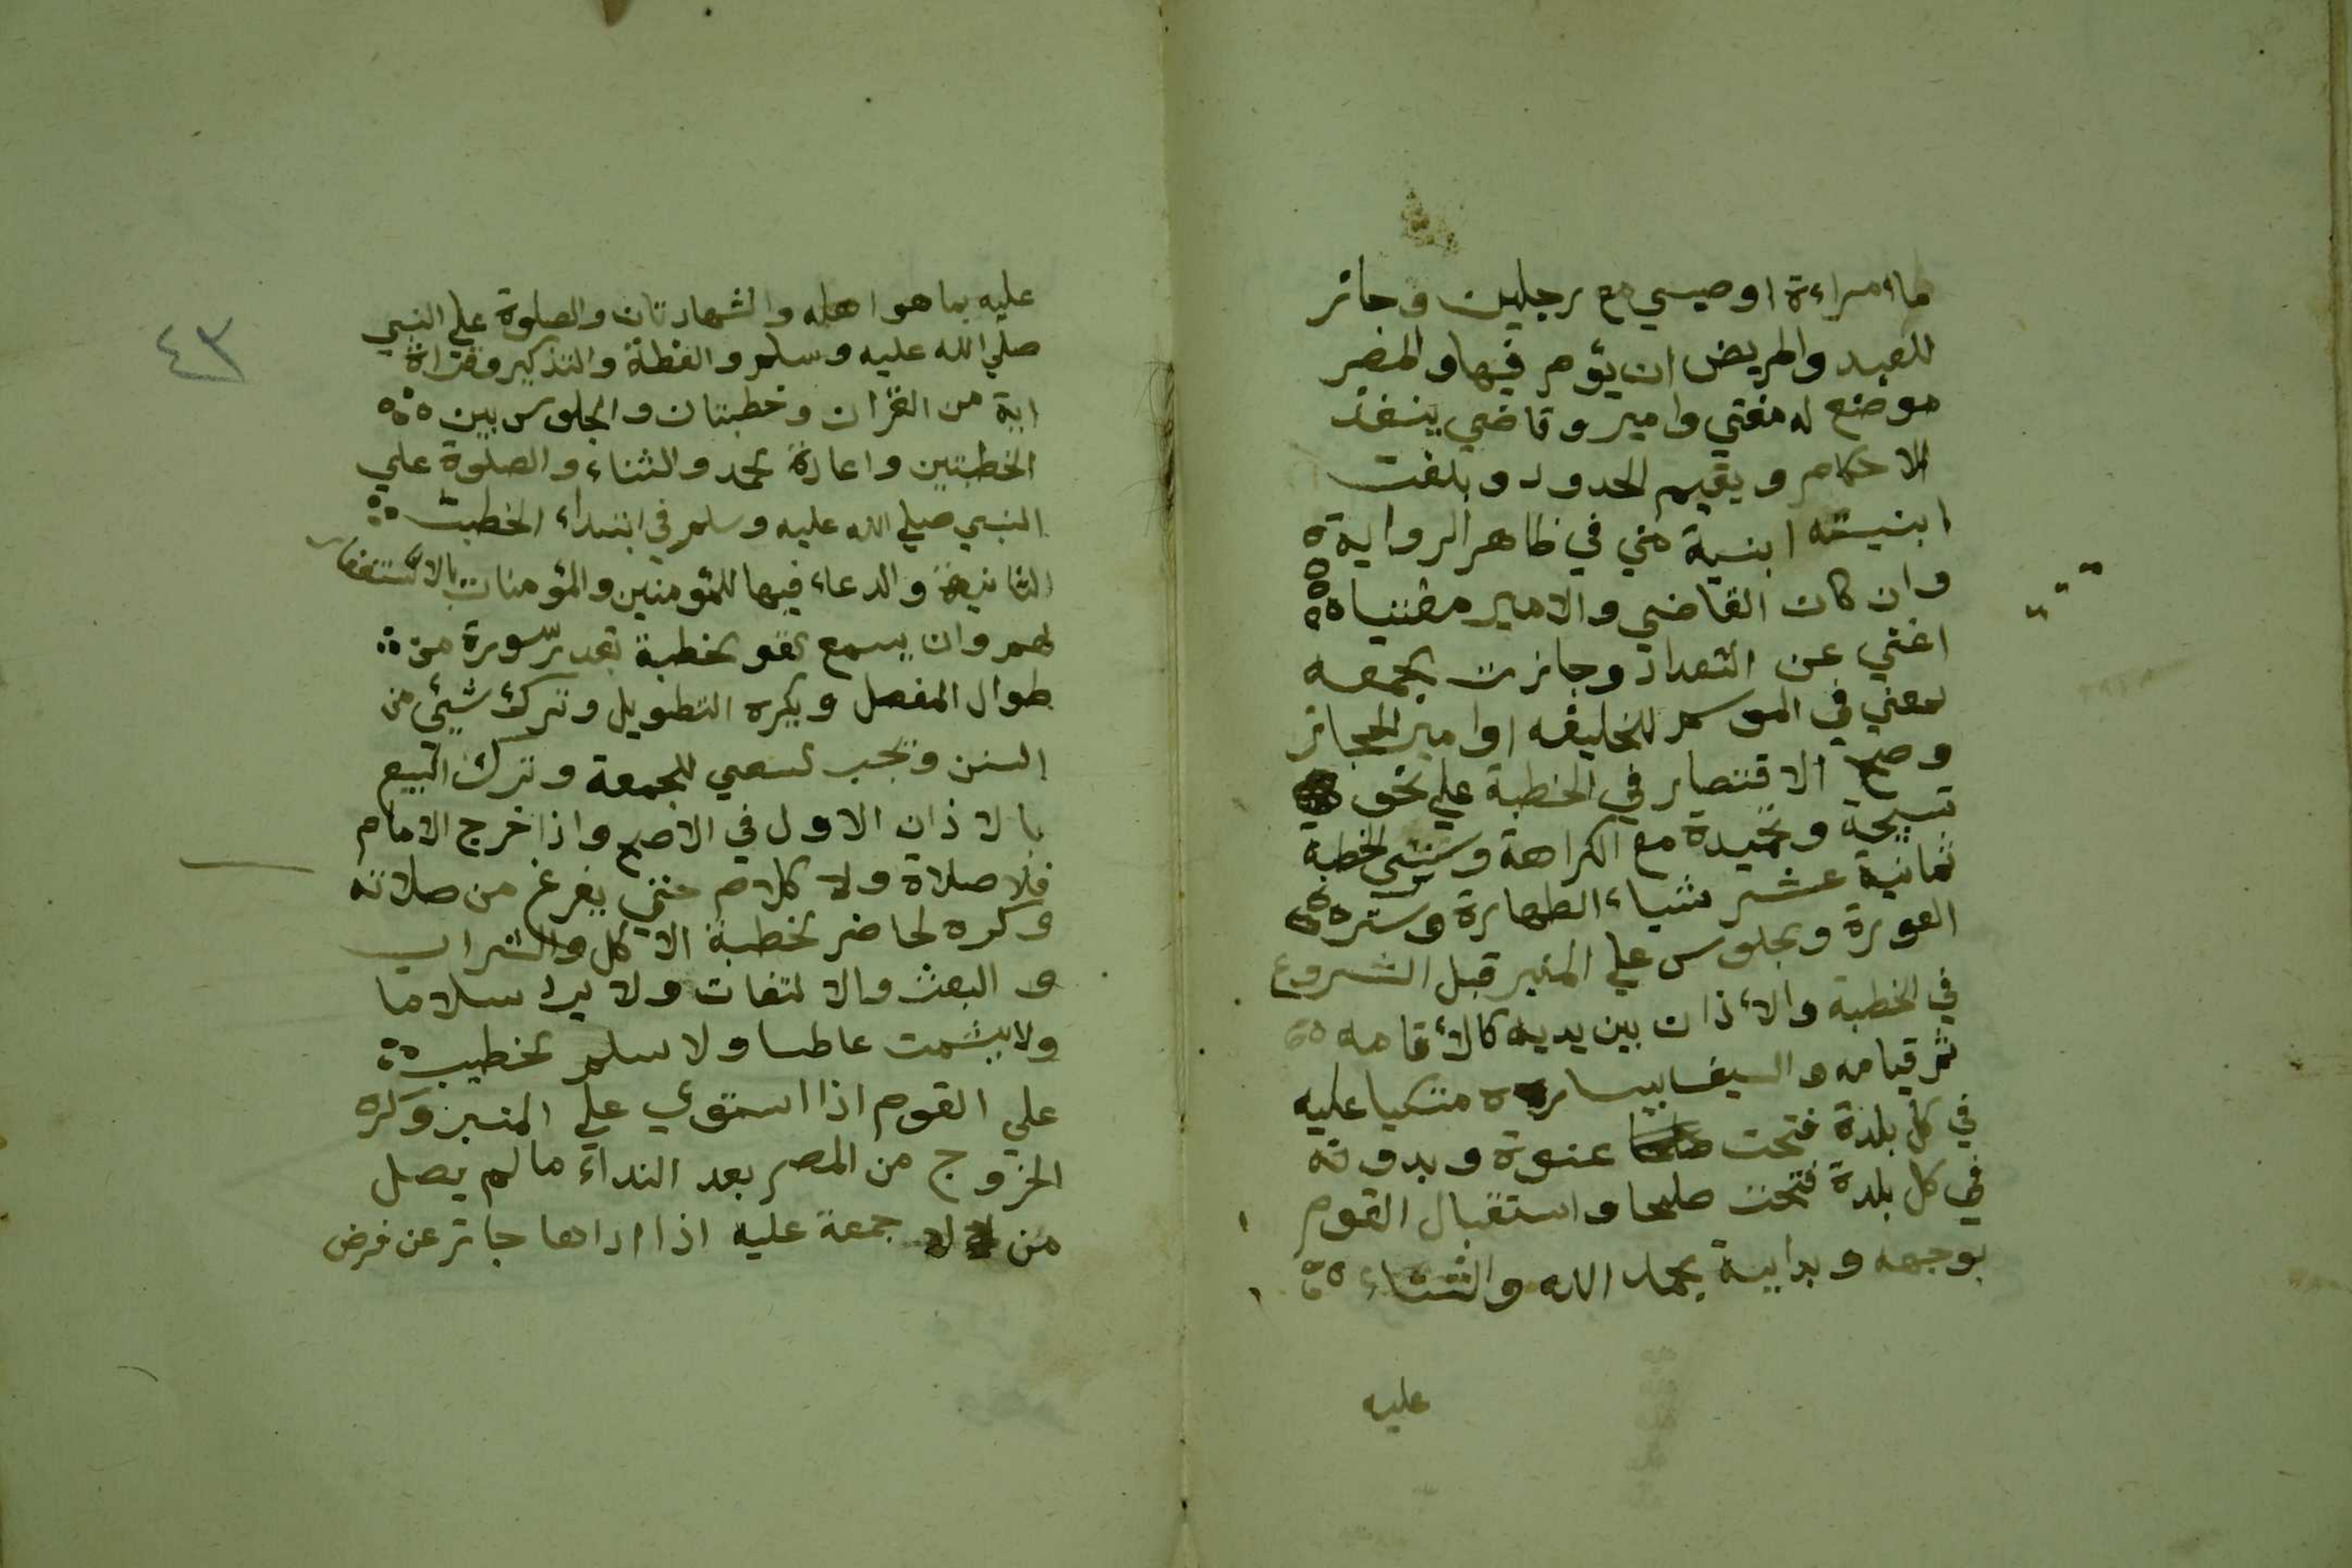 ما امراءة اوصيبي مع رجلين وجائز
للعبد والمريض ان يؤم فيها والمصر
موضع له مفتي وامير وقاضي ينفذ
الاحكام ويقيم الحدود وبلغت
ابنيته ابنية مني في ظاهر الرواية
وان كان القاضي والامير مفتيا
اغني عن التعداد وجازت الجمعه
بمعني في الموسم للخليفه اوامير الحجاز
وصح الاقتصار في الخطبة علي نحو
تسبيحة وتحميدة مع الكراهة وسنن الخطبة
ثمانية عشر شياء الطهارة وستر
العورة وجلوس علي المنبر قبل الشروع
في الخطبة والأذان بين يديه كالأقامه
ثم قيامه والسيف بيساره متكيا عليه
في كل بلدة فتحت عنوة وبدونه
في كل بلدة فتحت صلحا واستقبال القوم
بوجهه وبداية بحمد الله والثناء
عليه
عليه بما هو اهله والشهادتان والصلوة علي النبي
صلي الله عليه وسلم والعظة والتذكير وقراة
اية من القران وخطبتان والجلوس بين
الخطبتين واعادة حمد والثناء والصلوة علي
النبي صلي الله عليه وسلم في ابتداء الخطبت
الثانية والدعاء فيها للمؤمنين والمؤمنات بالاستغفار
لهم وان يسمع القو الخطبة بقدر سورة من
طوال المفصل ويكره التطويل وترك شيئ من
السنن ويجب السعي للجمعة وترك البيع
بالاذان الاول في الاصح واذا خرج الامام
فلا صلاة ولا كلام حتي يفرغ من صلاته
وكره لحاضر الخطبة الاكل والشراب
والبعث والالتفات ولا يرد سلاما
ولا يشمت عاطسا ولا سلم الخطيب
علي القوم اذا استوي علي المنبر وكره
الخروج من المصر بعد النداء مالم يصل
من لا جمعة عليه اذا اداها جاز عن فرض
٤٣